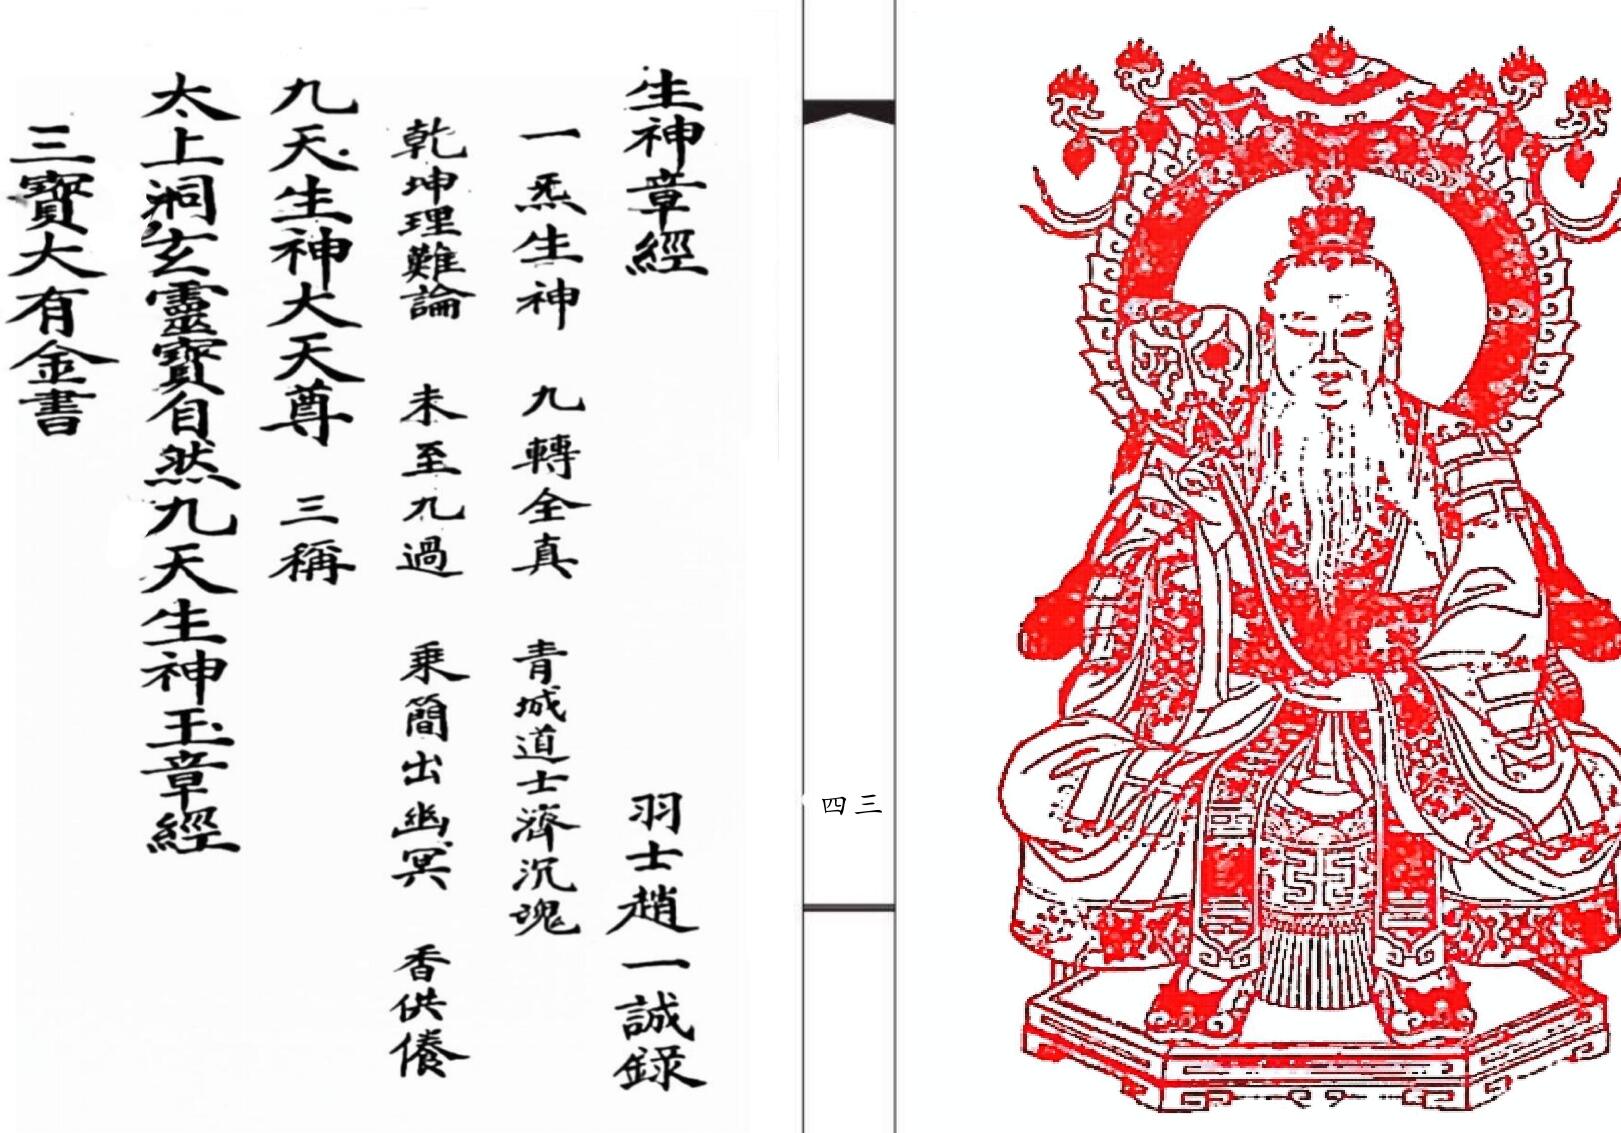 生神章經　羽士趙一誠錄
一炁生神　九轉全真　青城道士濟沉魂
乾坤理難論　未至九過　乘簡出幽冥　香供養
九天生神大天尊　三稱
太上洞玄靈寶自然九天生神玉章經
三寶大有金書
四三